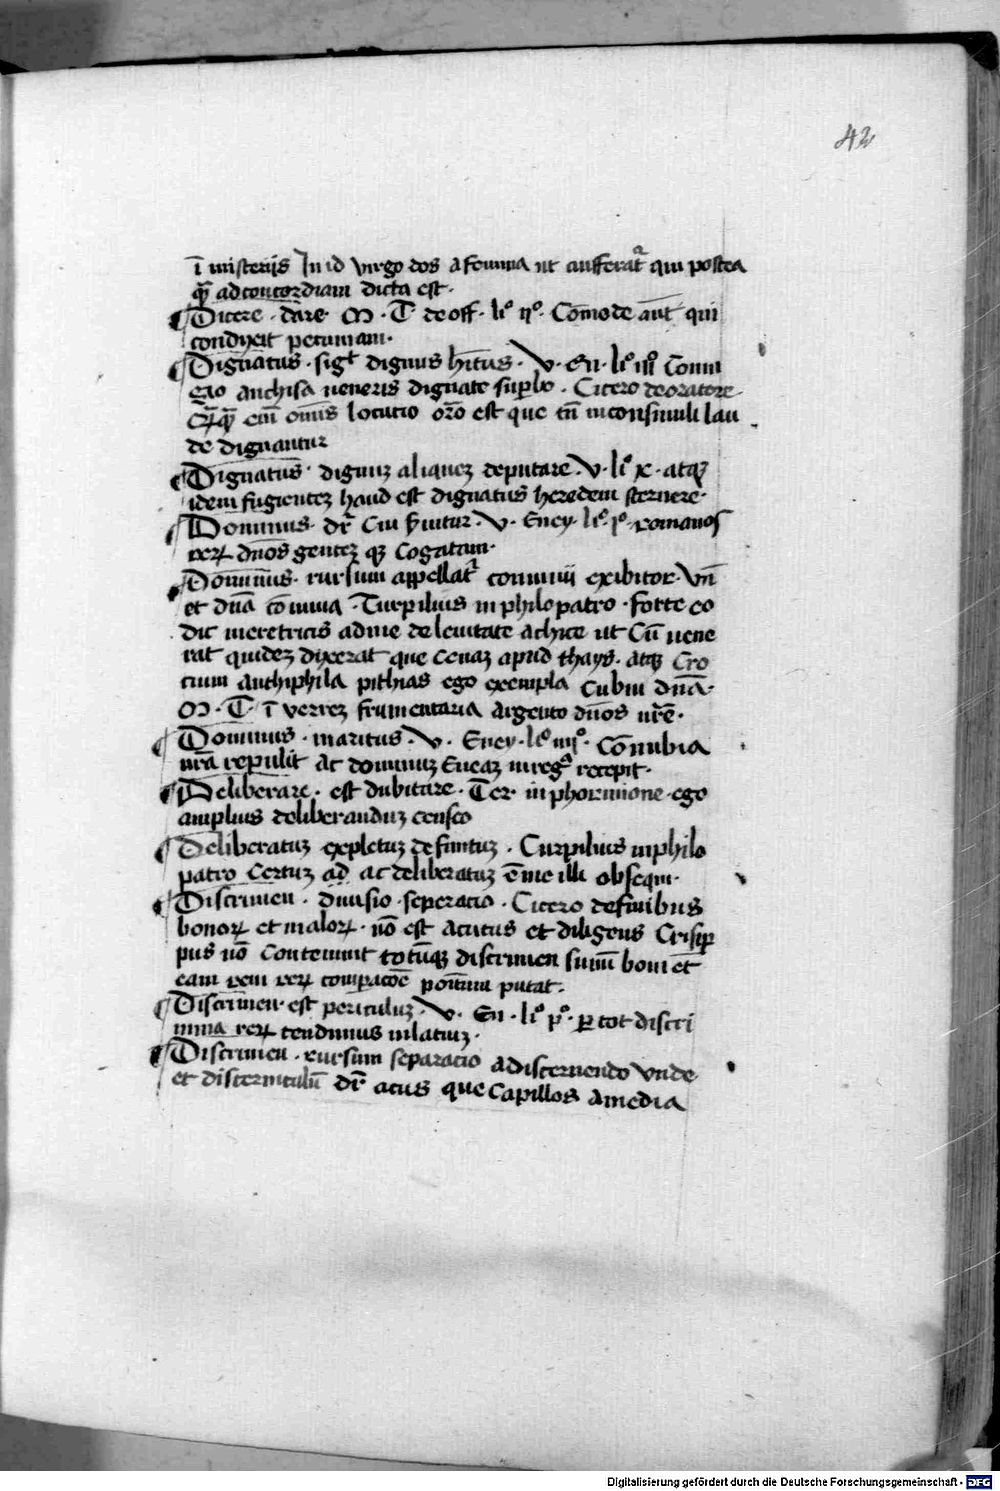 42
ī misterijs In id virgo dos a femina ut aufferat᷑ qui postea
qͣ ad concordiam dicta est ·
Dicere · dare · M · T · de off · liº ijº · Cōmode aūt qui
condixit pecuniam ·
Dignatus · sigᵗ dignus hītus · V · En · liº iijº Coniu
gio anchisa veneris dignate suꝑbo · Cicero de oratore ·
eīm om̄is locucio or̄o est que tn̄ in consimili lau
de dignantur
Dignatus · dignuꝫ aliqueꝫ deputare · V · liº x · atqꝫ
idem fugienteꝫ haud est dignatus heredem sternere ·
Dominus · dr̄ Cui ẜuitur · V · Eney · liº pº · romanos
reꝝ dn̄os genteꝫ qꝫ togatam ·
Dominus · rursum appellat᷑ conuiuij exibitor · Vn̄
et dn̄a cōmua · Turpilius in philopatro · forte eo
dic meretricis ad me de leuitate achice ut Cū vene
rat quideꝫ dixerat que cenaꝫ apud thays · atqꝫ Cro
cium anthiphila pithias ego exempla cubui dn̄a ·
M · T · ī verreꝫ frumentaria argento dn̄os vr̄e ·
Dominus · maritus · V · Eney · liº iiijº · Cōnubia
nr̄a reꝑulit ac dominuꝫ Eneaꝫ in regᵃ recepit ·
Deliberare · est dubitare · Ter · in phormione · ego
amplius deliberanduꝫ censeo
Deliberatuꝫ expletuꝫ defintuꝫ · Turpilius in philo
patro Certuꝫ ad ac deliberatuꝫ ē me illi obsequi ·
Discrimen · diuisio · seperacio · Cicero de finibus
bonoꝝ et maloꝝ · nō est acutus et diligens Crisip
pus nō contemnit totūqꝫ discrimen sum̄i boni et
eam rem reꝝ comparacōe poītum putat ·
Discrimen · est periculuꝫ · V · En · liº pº · ꝑ tot discri
mina reꝝ tendimus in latiuꝫ ·
Discrimen · rursum separacio a discernendo Vnde
et discerniculū dr̄ acus que Capillos a media
Digitalisierung gefördert durch die Deutsche Forschungsgemeinschaft - DFG